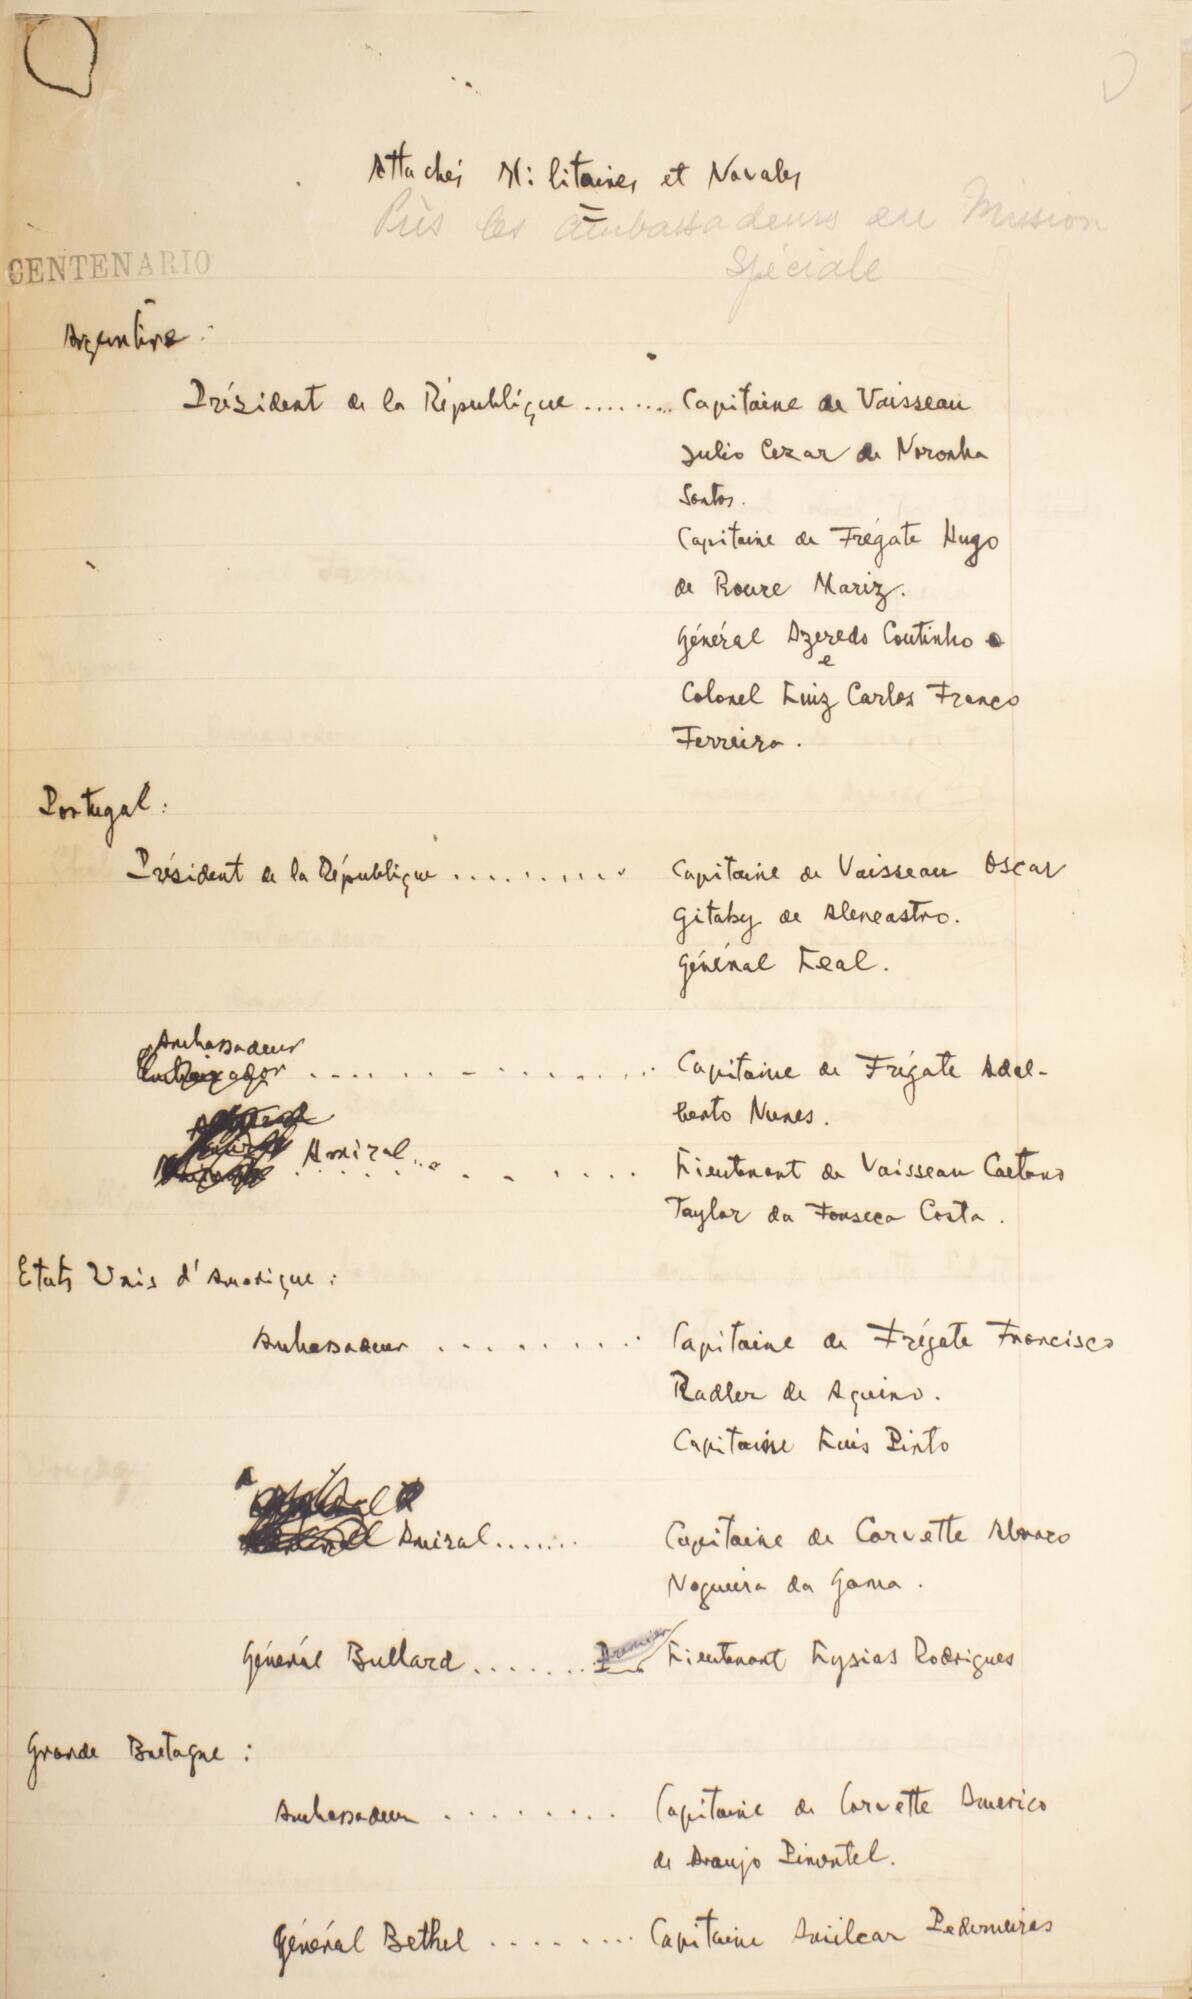 Attachés Militaires et Navales
Près les Ambassadeurs en Mission
Spéciale
CENTENARIO
Argentine :
Président de la République ........ Capitaine de Vaisseau
Julio Cezar de Noronha
Santos.
Capitaine de Frégate Hugo
de Roure Mariz.
Général Azeredo Coutinho
e
Colonel Luiz Carlos Franco
Ferreira.
Portugal :
Président de la République ......... Capitaine de Vaisseau Oscar
Gitahy de Alencastro.
Général Leal.
Ambassadeur
Embaixador ............. Capitaine de Frégate Adal-
berto Nunes.
Amiral ......... Lieutenant de Vaisseau Caetano
Taylor da Fonseca Costa.
Etats Unis d'Amerique :
Ambassadeur ........ Capitaine de Frégate Francisco
Radler de Aquino.
Capitaine Luis Pinto
Amiral....... Capitaine de Corvette Alvaro
Nogueira da Gama.
Général Bullard ....... Premier Lieutenant Lysias Rodrigues
Grande Bretagne :
Ambassadeur ........ Capitaine de Corvette Americo
de Araujo Pimentel.
Général Bethel ........ Capitaine Amilcar Pederneiras